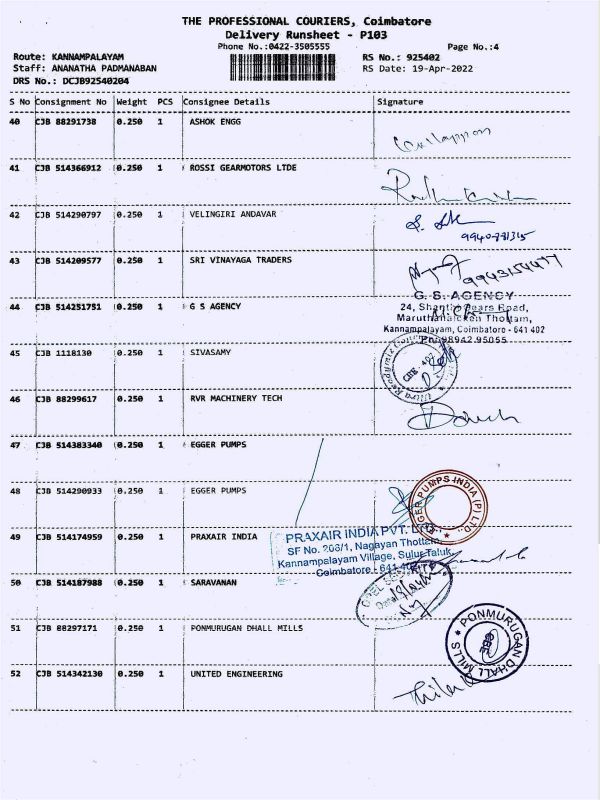 THE PROFESSIONAL COURIERS, Coimbatore
Delivery Runsheet - P103
Phone No.:0422-3505555
Page No.:4
Route: KANNAMPALAYAM
RS No.: 925402
Staff: ANANATHA PADMANABAN
RS Date: 19-Apr-2022
DRS No.: DCJB92540204
S No Consignment No Weight PCS Consignee Details Signature
40 CJB 88291738 0.250 1 ASHOK ENGG
41 CJB 514366912 0.250 1 ROSSI GEARMOTORS LTDE
42 CJB 514290797 0.250 1 VELINGIRI ANDAVAR
43 CJB 514209577 0.250 1 SRI VINAYAGA TRADERS
9943154477
G. S. AGENCY
44 CJB 514251751 0.250 1 G S AGENCY
24, Shanthi Gears Road,
Maruthanaicken Thottam,
Kannampalayam, Coimbatore - 641 402
Ph: 98942 95055
45 CJB 1118130 0.250 1 SIVASAMY
CBE - 402
46 CJB 88299617 0.250 1 RVR MACHINERY TECH
47 CJB 514383340 0.250 1 EGGER PUMPS
48 CJB 514290933 0.250 1 EGGER PUMPS
EGGER PUMPS INDIA (P) LTD.
49 CJB 514174959 0.250 1 PRAXAIR INDIA
PRAXAIR INDIA PVT. LTD.
SF No. 206/1, Nagayan Thottam,
Kannampalayam Village, Sulur Taluk,
Coimbatore - 641 402
50 CJB 514187988 0.250 1 SARAVANAN
51 CJB 88297171 0.250 1 PONMURUGAN DHALL MILLS
PONMURUGAN DHALL MILLS
CBE
52 CJB 514342130 0.250 1 UNITED ENGINEERING